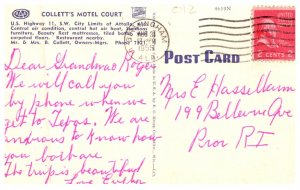 COLLETT'S MOTEL COURT
U.S. Highway 11, S.W. City Limits of Attalla,
Central air condition, central hot air heat,
furniture, Beauty Rest mattresses, tiled
carpeted floors. Restaurant nearby.
Mr. & Mrs. B. Collett, Owners-Mgrs. Phone
POST CARD
2 CENTS 2
Dear Grandma
We will call you
by phone when we
get to Texas. We are
anxious to know how
you both are
The trip is beautiful
Love
Mrs E Hasselbaum
199 Bellevue Ave
Prov RI